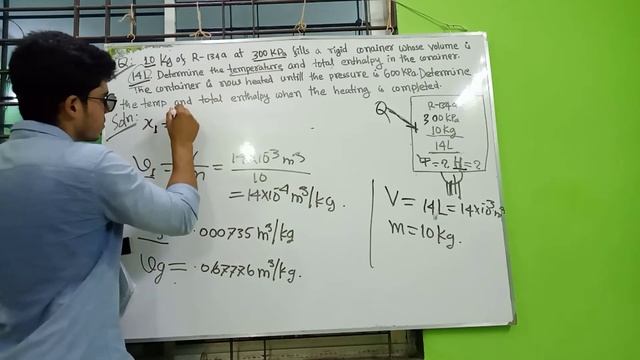 Q: 10 Kg of R-134a at 300 KPa fills a rigid conainer whose volume is
14L. Determine the temperature and total enthalpy in the conainer.
The container is now heated untill the pressure is 600 KPa. Determine
the temp and total enthalpy when the heating is completed.
Soln:
x₁ =
Q
R-134a
300 KPa
10 Kg
14L
T=? H=?
= 14×10⁻³ m³
10
= 14×10⁻⁴ m³/kg.
V = 14L = 14×10⁻³ m³
m = 10 kg.
.000735 m³/kg
υg = .067776 m³/kg.